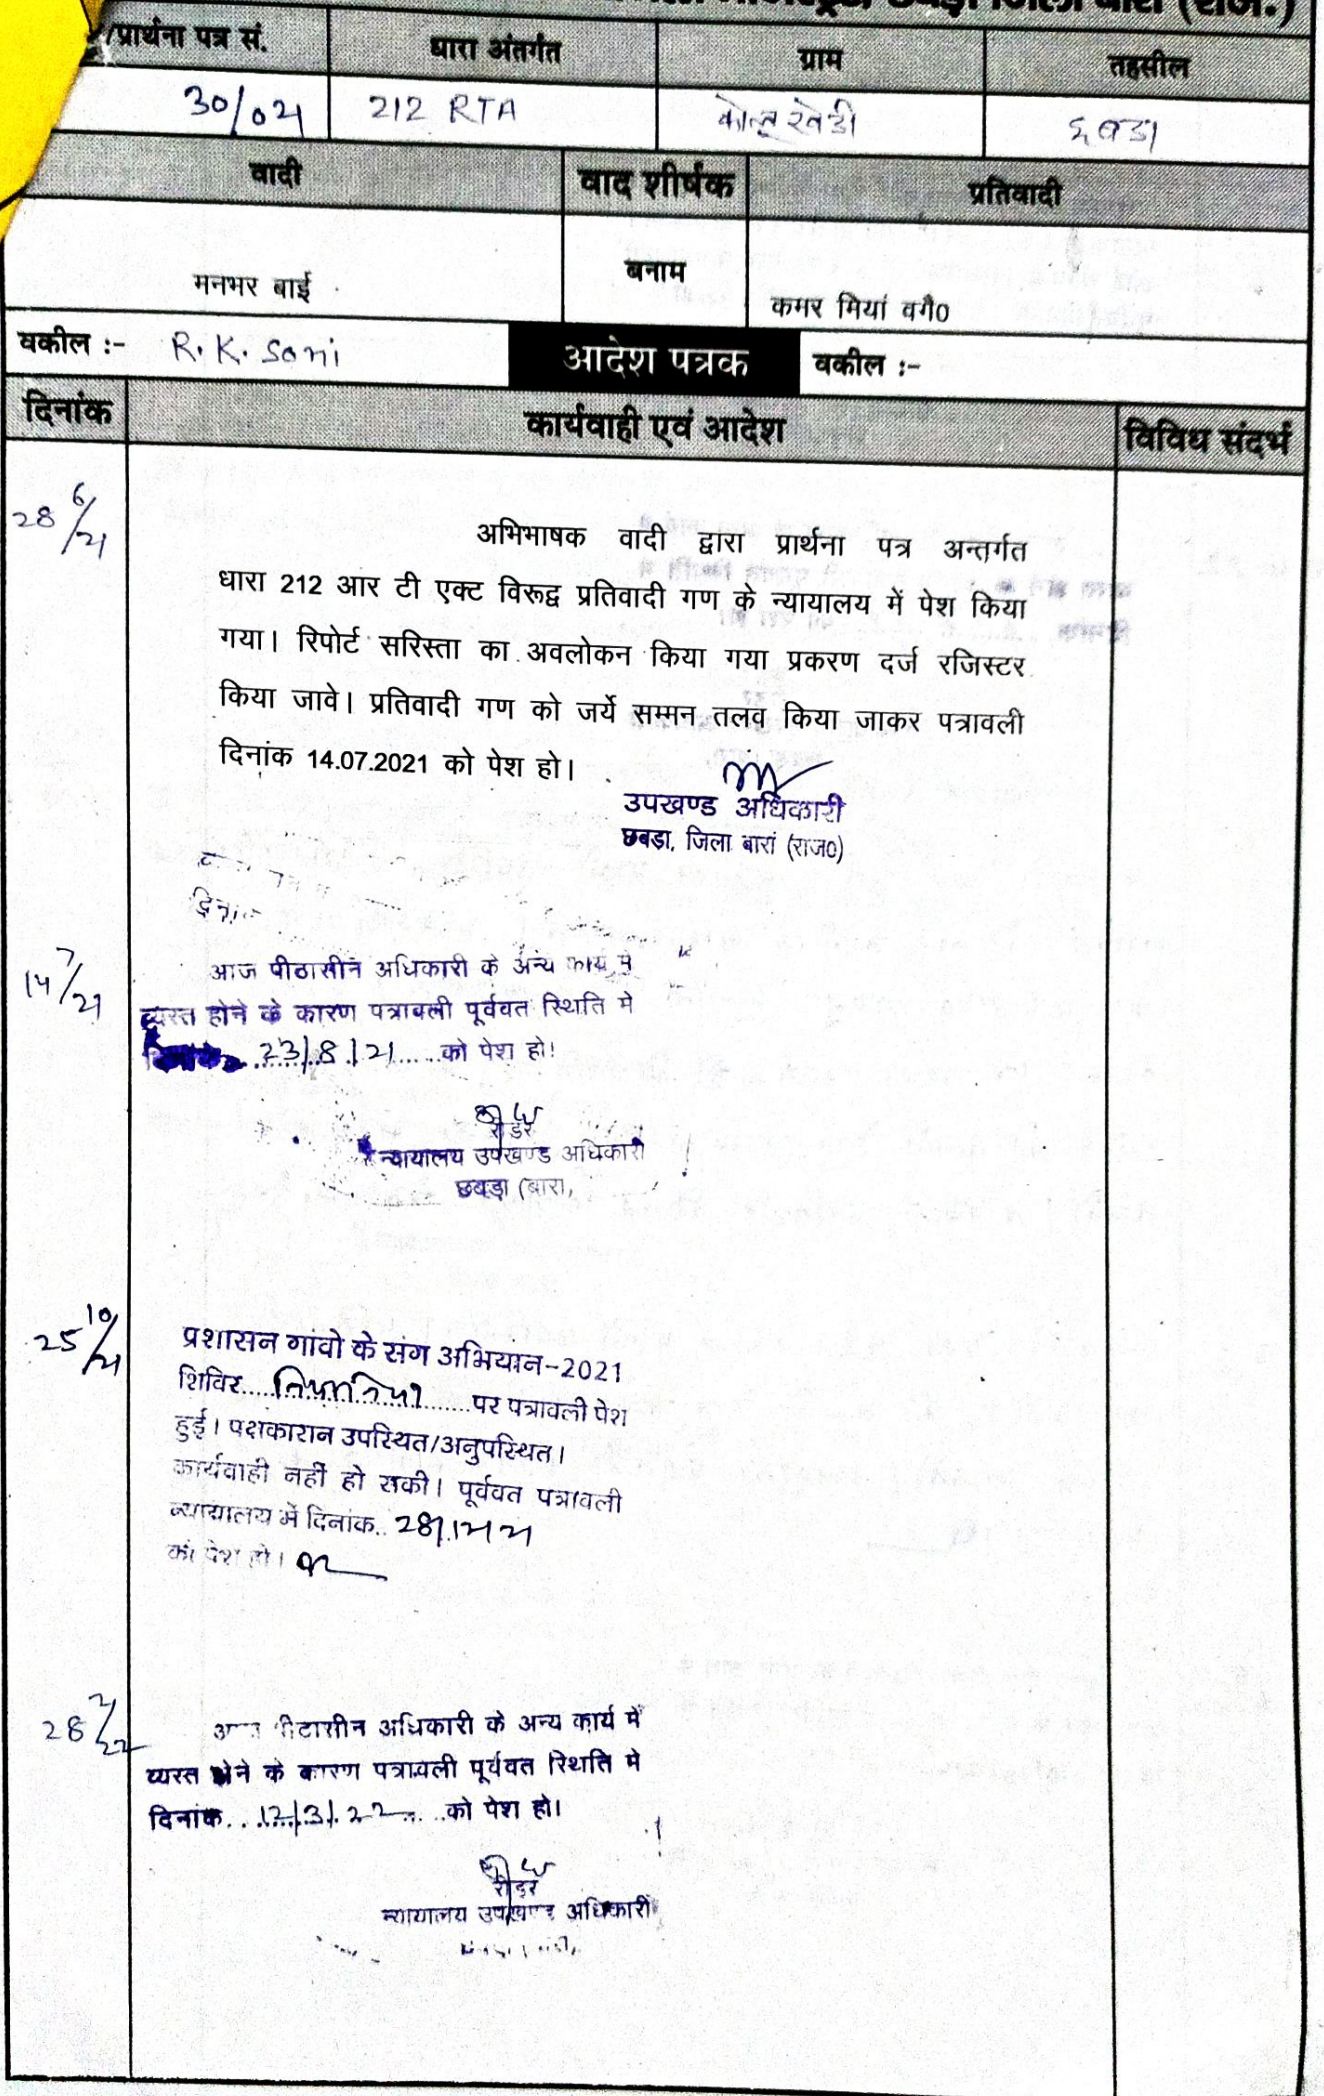 छबड़ा जिला बारां (राज.)
प्रार्थना पत्र सं. धारा अंतर्गत ग्राम तहसील
30/021 212 RTA कोलूखेडी छबडा
वादी वाद शीर्षक प्रतिवादी
मनभर बाई बनाम कमर मियां वगै0
वकील :- R.K. Soni आदेश पत्रक वकील :-
दिनांक कार्यवाही एवं आदेश विविध संदर्भ
28 6/21
अभिभाषक वादी द्वारा प्रार्थना पत्र अन्तर्गत
धारा 212 आर टी एक्ट विरूद्व प्रतिवादी गण के न्यायालय में पेश किया
गया। रिपोर्ट सरिस्ता का अवलोकन किया गया प्रकरण दर्ज रजिस्टर
किया जावे। प्रतिवादी गण को जर्ये सम्मन तलव किया जाकर पत्रावली
दिनांक 14.07.2021 को पेश हो।
उपखण्ड अधिकारी
छबडा, जिला बारां (राज0)
14 7/21
आज पीठासीन अधिकारी के अन्य कार्य मे
व्यस्त होने के कारण पत्रावली पूर्ववत स्थिति मे
23/8/21 को पेश हो!
रीडर
न्यायालय उपखण्ड अधिकारी
छबड़ा (बारा,
25 10/21
प्रशासन गांवो के संग अभियान-2021
शिविर..... पर पत्रावली पेश
हुई। पक्षकारान उपस्थित/अनुपस्थित।
कार्यवाही नहीं हो सकी। पूर्ववत पत्रावली
न्यायालय में दिनांक..
को पेश हो।
28 2/22
पीटासीन अधिकारी के अन्य कार्य में
व्यस्त होने के कारण पत्रावली पूर्ववत स्थिति मे
दिनांक. . 12/3/22 को पेश हो।
रीडर
न्यायालय उपखण्ड अधिकारी